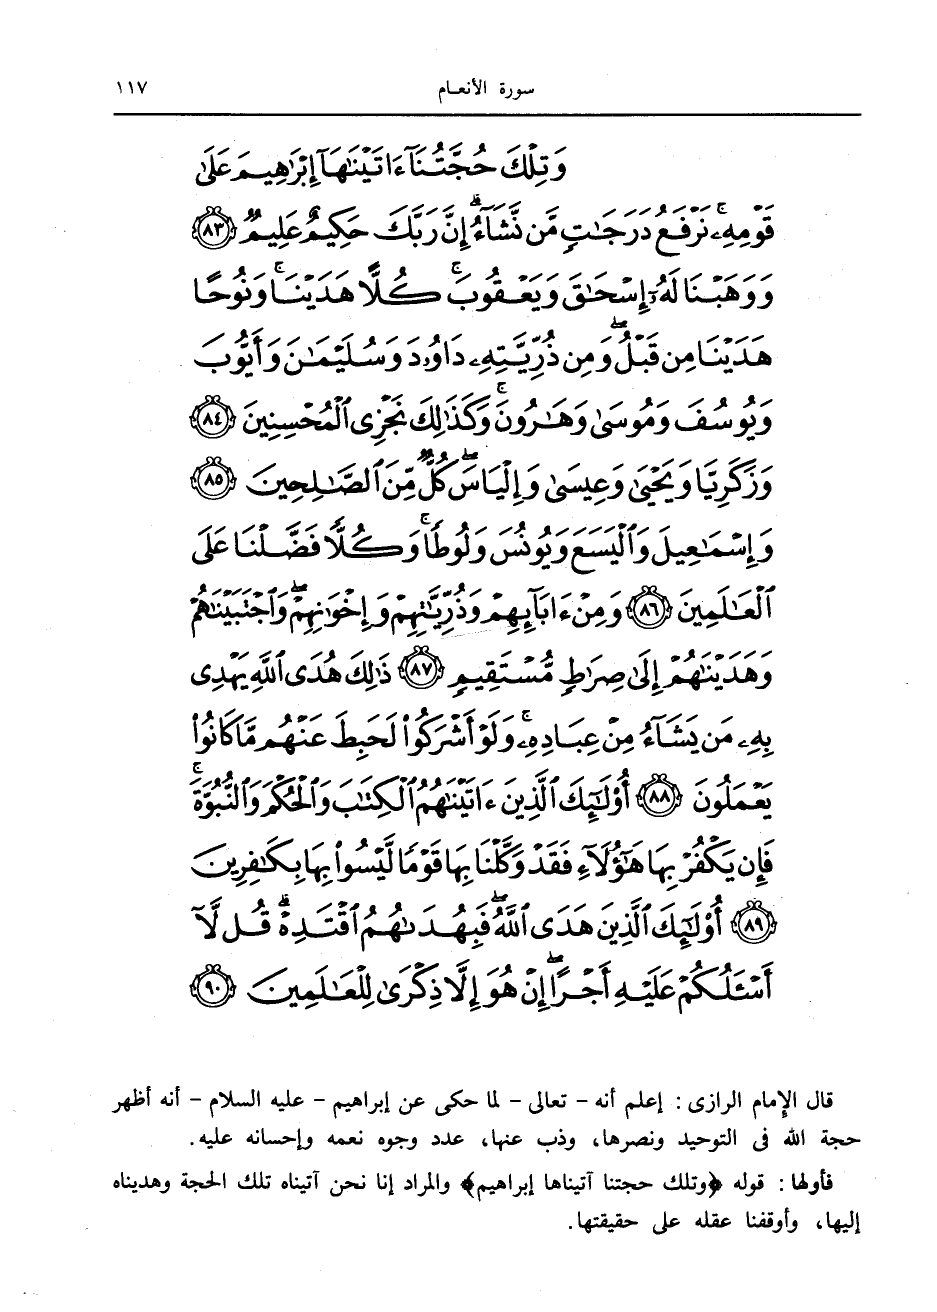 سورة الأنعـام ١١٧
وَتِلْكَ حُجَّتُنَآ ءَاتَيْنَٰهَآ إِبْرَٰهِيمَ عَلَىٰ
قَوْمِهِۦۚ نَرْفَعُ دَرَجَٰتٍ مَّن نَّشَآءُۗ إِنَّ رَبَّكَ حَكِيمٌ عَلِيمٌ ٨٣
وَوَهَبْنَا لَهُۥٓ إِسْحَٰقَ وَيَعْقُوبَۚ كُلًّا هَدَيْنَاۚ وَنُوحًا
هَدَيْنَا مِن قَبْلُۖ وَمِن ذُرِّيَّتِهِۦ دَاوُۥدَ وَسُلَيْمَٰنَ وَأَيُّوبَ
وَيُوسُفَ وَمُوسَىٰ وَهَٰرُونَۚ وَكَذَٰلِكَ نَجْزِى ٱلْمُحْسِنِينَ ٨٤
وَزَكَرِيَّا وَيَحْيَىٰ وَعِيسَىٰ وَإِلْيَاسَۖ كُلٌّ مِّنَ ٱلصَّٰلِحِينَ ٨٥
وَإِسْمَٰعِيلَ وَٱلْيَسَعَ وَيُونُسَ وَلُوطًاۚ وَكُلًّا فَضَّلْنَا عَلَى
ٱلْعَٰلَمِينَ ٨٦ وَمِنْ ءَابَآئِهِمْ وَذُرِّيَّٰتِهِمْ وَإِخْوَٰنِهِمْۖ وَٱجْتَبَيْنَٰهُمْ
وَهَدَيْنَٰهُمْ إِلَىٰ صِرَٰطٍ مُّسْتَقِيمٍ ٨٧ ذَٰلِكَ هُدَى ٱللَّهِ يَهْدِى
بِهِۦ مَن يَشَآءُ مِنْ عِبَادِهِۦۚ وَلَوْ أَشْرَكُوا۟ لَحَبِطَ عَنْهُم مَّا كَانُوا۟
يَعْمَلُونَ ٨٨ أُو۟لَٰٓئِكَ ٱلَّذِينَ ءَاتَيْنَٰهُمُ ٱلْكِتَٰبَ وَٱلْحُكْمَ وَٱلنُّبُوَّةَۚ
فَإِن يَكْفُرْ بِهَا هَٰٓؤُلَآءِ فَقَدْ وَكَّلْنَا بِهَا قَوْمًا لَّيْسُوا۟ بِهَا بِكَٰفِرِينَ
٨٩ أُو۟لَٰٓئِكَ ٱلَّذِينَ هَدَى ٱللَّهُۖ فَبِهُدَىٰهُمُ ٱقْتَدِهْۗ قُل لَّآ
أَسْـَٔلُكُمْ عَلَيْهِ أَجْرًاۖ إِنْ هُوَ إِلَّا ذِكْرَىٰ لِلْعَٰلَمِينَ ٩٠
قال الإمام الرازى : إعلم أنه - تعالى - لما حكى عن إبراهيم - عليه السلام - أنه أظهر
حجة الله فى التوحيد ونصرها، وذب عنها، عدد وجوه نعمه وإحسانه عليه.
فأولها : قوله ﴿وتلك حجتنا آتيناها إبراهيم﴾ والمراد إنا نحن آتيناه تلك الحجة وهديناه
إليها، وأوقفنا عقله على حقيقتها.